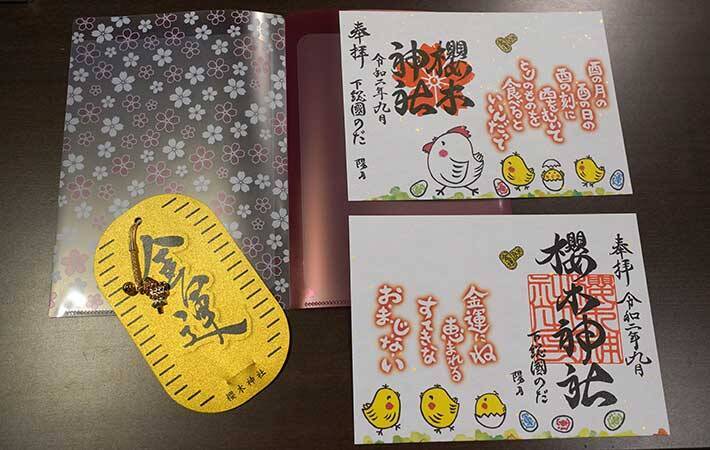 酉の月の
酉の日の
酉の刻に
酉をむいて
とりの
食べると
いいんだって
櫻木
神社
令和二年九月
下総國のだ
奉拝
奉拝 令和二年九月
櫻木神社
下総國のだ
金運にね
恵まれる
すてきな
おまじない
金運
櫻木神社